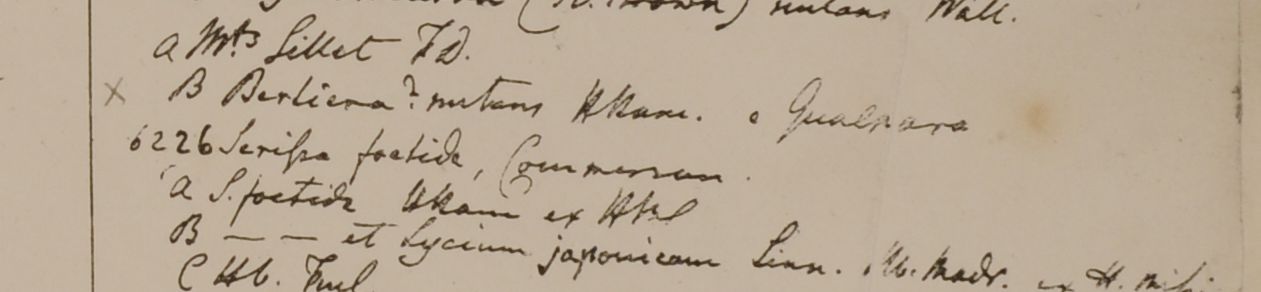 (R. Brown) nutans Wall.
a Mts Sillet FD.
x B Bertiera? nutans HHam. e Gualpara
6226 Serissa foetida, Commerson.
a S. foetida HHam ex HBC
B — — et Lycium japonicum Linn. Hb. Madr. ex H.
C Hb. Finl